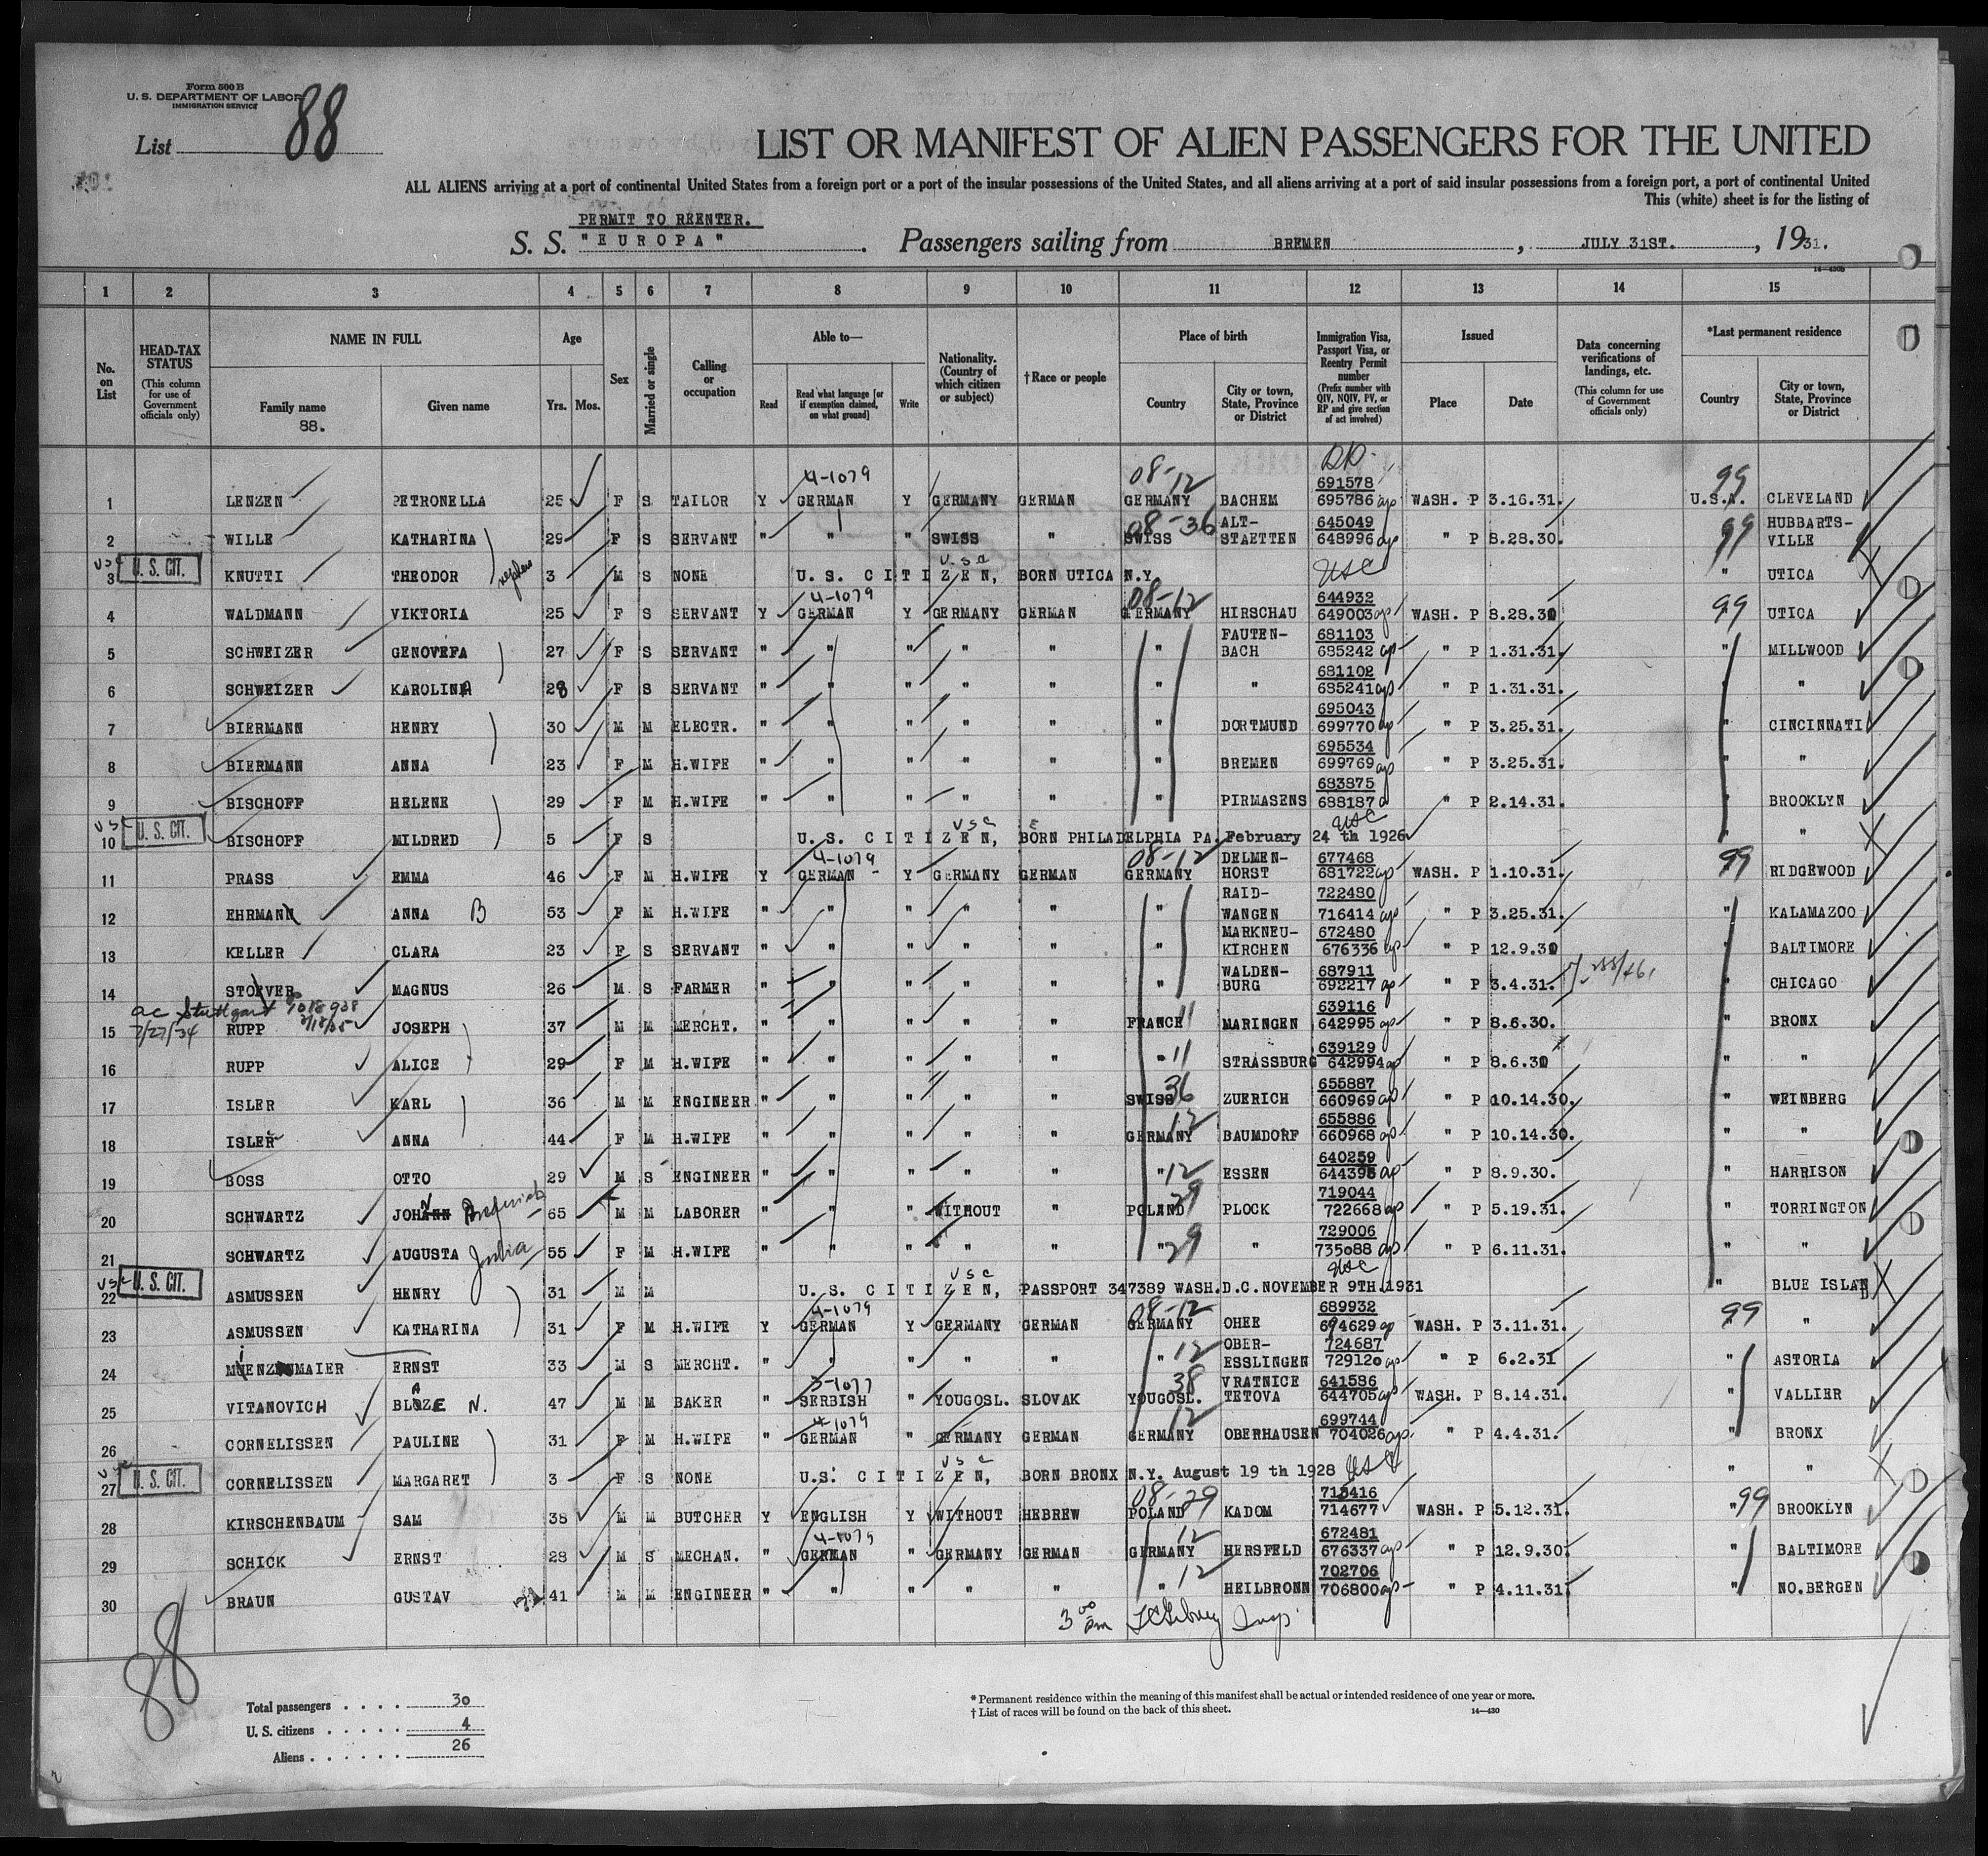 Form 500 B
U. S. DEPARTMENT OF LABOR
IMMIGRATION SERVICE
List 88
LIST OR MANIFEST OF ALIEN PASSENGERS FOR THE UNITED
ALL ALIENS arriving at a port of continental United States from a foreign port or a port of the insular possessions of the United States, and all aliens arriving at a port of said insular possessions from a foreign port, a port of continental United
This (white) sheet is for the listing of
PERMIT TO REENTER.
S. S. "EUROPA" Passengers sailing from BREMEN, JULY 31ST., 1931.
14—430b
1 2 3 4 5 6 7 8 9 10 11 12 13 14 15
No. on List
HEAD-TAX STATUS (This column for use of Government officials only)
NAME IN FULL
Family name Given name
88.
Age
Yrs. Mos.
Sex
Married or single
Calling or occupation
Able to—
Read Read what language [or if exemption claimed, on what ground] Write
Nationality. (Country of which citizen or subject)
† Race or people
Place of birth
Country City or town, State, Province or District
Immigration Visa, Passport Visa, or Reentry Permit number (Prefix number with QIV, NQIV, PV, or RP and give section of act involved)
Issued
Place Date
Data concerning verifications of landings, etc. (This column for use of Government officials only)
*Last permanent residence
Country City or town, State, Province or District
4-1079 08-12 99
1 LENZEN PETRONELLA 25 F S TAILOR Y GERMAN Y GERMANY GERMAN GERMANY BACHEM 691578 695786 WASH. P 3.16.31. U.S.A. CLEVELAND
2 WILLE KATHARINA 29 F S SERVANT " " " SWISS " SWISS 08-36 ALT-STAETTEN 645049 648996 " P 8.28.30. 99 HUBBARTS-VILLE
usc U. S. CIT. usc
3 KNUTTI THEODOR nephew 3 M S NONE U. S. CITIZEN, BORN UTICA N.Y. USC " UTICA
4-1079 08-12
4 WALDMANN VIKTORIA 25 F S SERVANT Y GERMAN Y GERMANY GERMAN GERMANY HIRSCHAU 644932 649003 WASH. P 8.28.30 99 UTICA
5 SCHWEIZER GENOVEFA 27 F S SERVANT " " " " " " FAUTEN-BACH 681103 685242 " P 1.31.31. " MILLWOOD
6 SCHWEIZER KAROLINA 28 F S SERVANT " " " " " " " 681102 685241 " P 1.31.31. " "
7 BIERMANN HENRY 30 M M ELECTR. " " " " " " DORTMUND 695043 699770 " P 3.25.31. " CINCINNATI
8 BIERMANN ANNA 23 F M H.WIFE " " " " " " BREMEN 695534 699769 " P 3.25.31. " "
9 BISCHOFF HELENE 29 F M H.WIFE " " " " " " PIRMASENS 683875 688187 " P 2.14.31. " BROOKLYN
usc U. S. CIT. usc USC
10 BISCHOFF MILDRED 5 F S U. S. CITIZEN, BORN PHILADELPHIA PA. February 24 th 1926 " "
4-1079 08-12
11 PRASS EMMA 46 F M H.WIFE Y GERMAN Y GERMANY GERMAN GERMANY DELMEN-HORST 677468 681722 WASH. P 1.10.31. 99 RIDGEWOOD
12 EHRMANN ANNA B 53 F M H.WIFE " " " " " " RAID-WANGEN 722480 716414 " P 3.25.31. " KALAMAZOO
13 KELLER CLARA 23 F S SERVANT " " " " " " MARKNEU-KIRCHEN 672480 676336 " P 12.9.30 " BALTIMORE
14 STOEVER MAGNUS 26 M S FARMER " " " " " " WALDEN-BURG 687911 692217 " P 3.4.31. " CHICAGO
ac Stuttgart 7/27/34
15 RUPP JOSEPH 37 M M MERCHT. " " " " " FRANCE 11 MARINGEN 639116 642995 " P 8.6.30. " BRONX
16 RUPP ALICE 29 F M H.WIFE " " " " " " 11 STRASSBURG 639129 642994 " P 8.6.30 " "
17 ISLER KARL 36 M M ENGINEER " " " " " SWISS 36 ZUERICH 655887 660969 " P 10.14.30. " WEINBERG
18 ISLER ANNA 44 F M H.WIFE " " " " " GERMANY 12 BAUMDORF 655886 660968 " P 10.14.30. " "
19 BOSS OTTO 29 M S ENGINEER " " " " " " 12 ESSEN 640259 644395 " P 8.9.30. " HARRISON
20 SCHWARTZ JOHN Frederick 65 M M LABORER " " " WITHOUT " POLAND 29 PLOCK 719044 722668 " P 5.19.31. " TORRINGTON
21 SCHWARTZ AUGUSTA Julia 55 F M H.WIFE " " " " " " 29 " 729006 735088 " P 6.11.31. " "
usc U. S. CIT. usc USC
22 ASMUSSEN HENRY 31 M M U. S. CITIZEN, PASSPORT 347389 WASH.D.C. NOVEMBER 9TH.1931 " BLUE ISLAND
4-1079 08-12
23 ASMUSSEN KATHARINA 31 F M H.WIFE Y GERMAN Y GERMANY GERMAN GERMANY OHER 689932 694629 WASH. P 3.11.31. 99 "
24 MUENZENMAIER ERNST 33 M S MERCHT. " " " " " " 12 OBER-ESSLINGEN 724687 729120 " P 6.2.31 " ASTORIA
3-1077 38
25 VITANOVICH BLAZE N. 47 M M BAKER " SERBISH " YOUGOSL. SLOVAK YOUGOSL. VRATNICE TETOVA 641586 644705 WASH. P 8.14.31. " VALLIER
4-1079 12
26 CORNELISSEN PAULINE 31 F M H.WIFE " GERMAN " GERMANY GERMAN GERMANY OBERHAUSEN 699744 704026 " P 4.4.31. " BRONX
usc U. S. CIT. usc
27 CORNELISSEN MARGARET 3 F S NONE U.S. CITIZEN, BORN BRONX N.Y. August 19 th 1928 USC " "
08-29
28 KIRSCHENBAUM SAM 38 M M BUTCHER Y ENGLISH Y WITHOUT HEBREW POLAND KADOM 714677 WASH. P 5.12.31. " 99 BROOKLYN
4-1079 12
29 SCHICK ERNST 28 M S MECHAN. " GERMAN " GERMANY GERMAN GERMANY HERSFELD 672481 676337 " P 12.9.30. " BALTIMORE
30 BRAUN GUSTAV 41 M M ENGINEER " " " " " " 12 HEILBRONN 702706 706800 " P 4.11.31. " NO.BERGEN
3 00 pm Insp.
88
Total passengers . . . . 30
U. S. citizens . . . . . 4
Aliens . . . . . . 26
* Permanent residence within the meaning of this manifest shall be actual or intended residence of one year or more.
† List of races will be found on the back of this sheet. 14—430